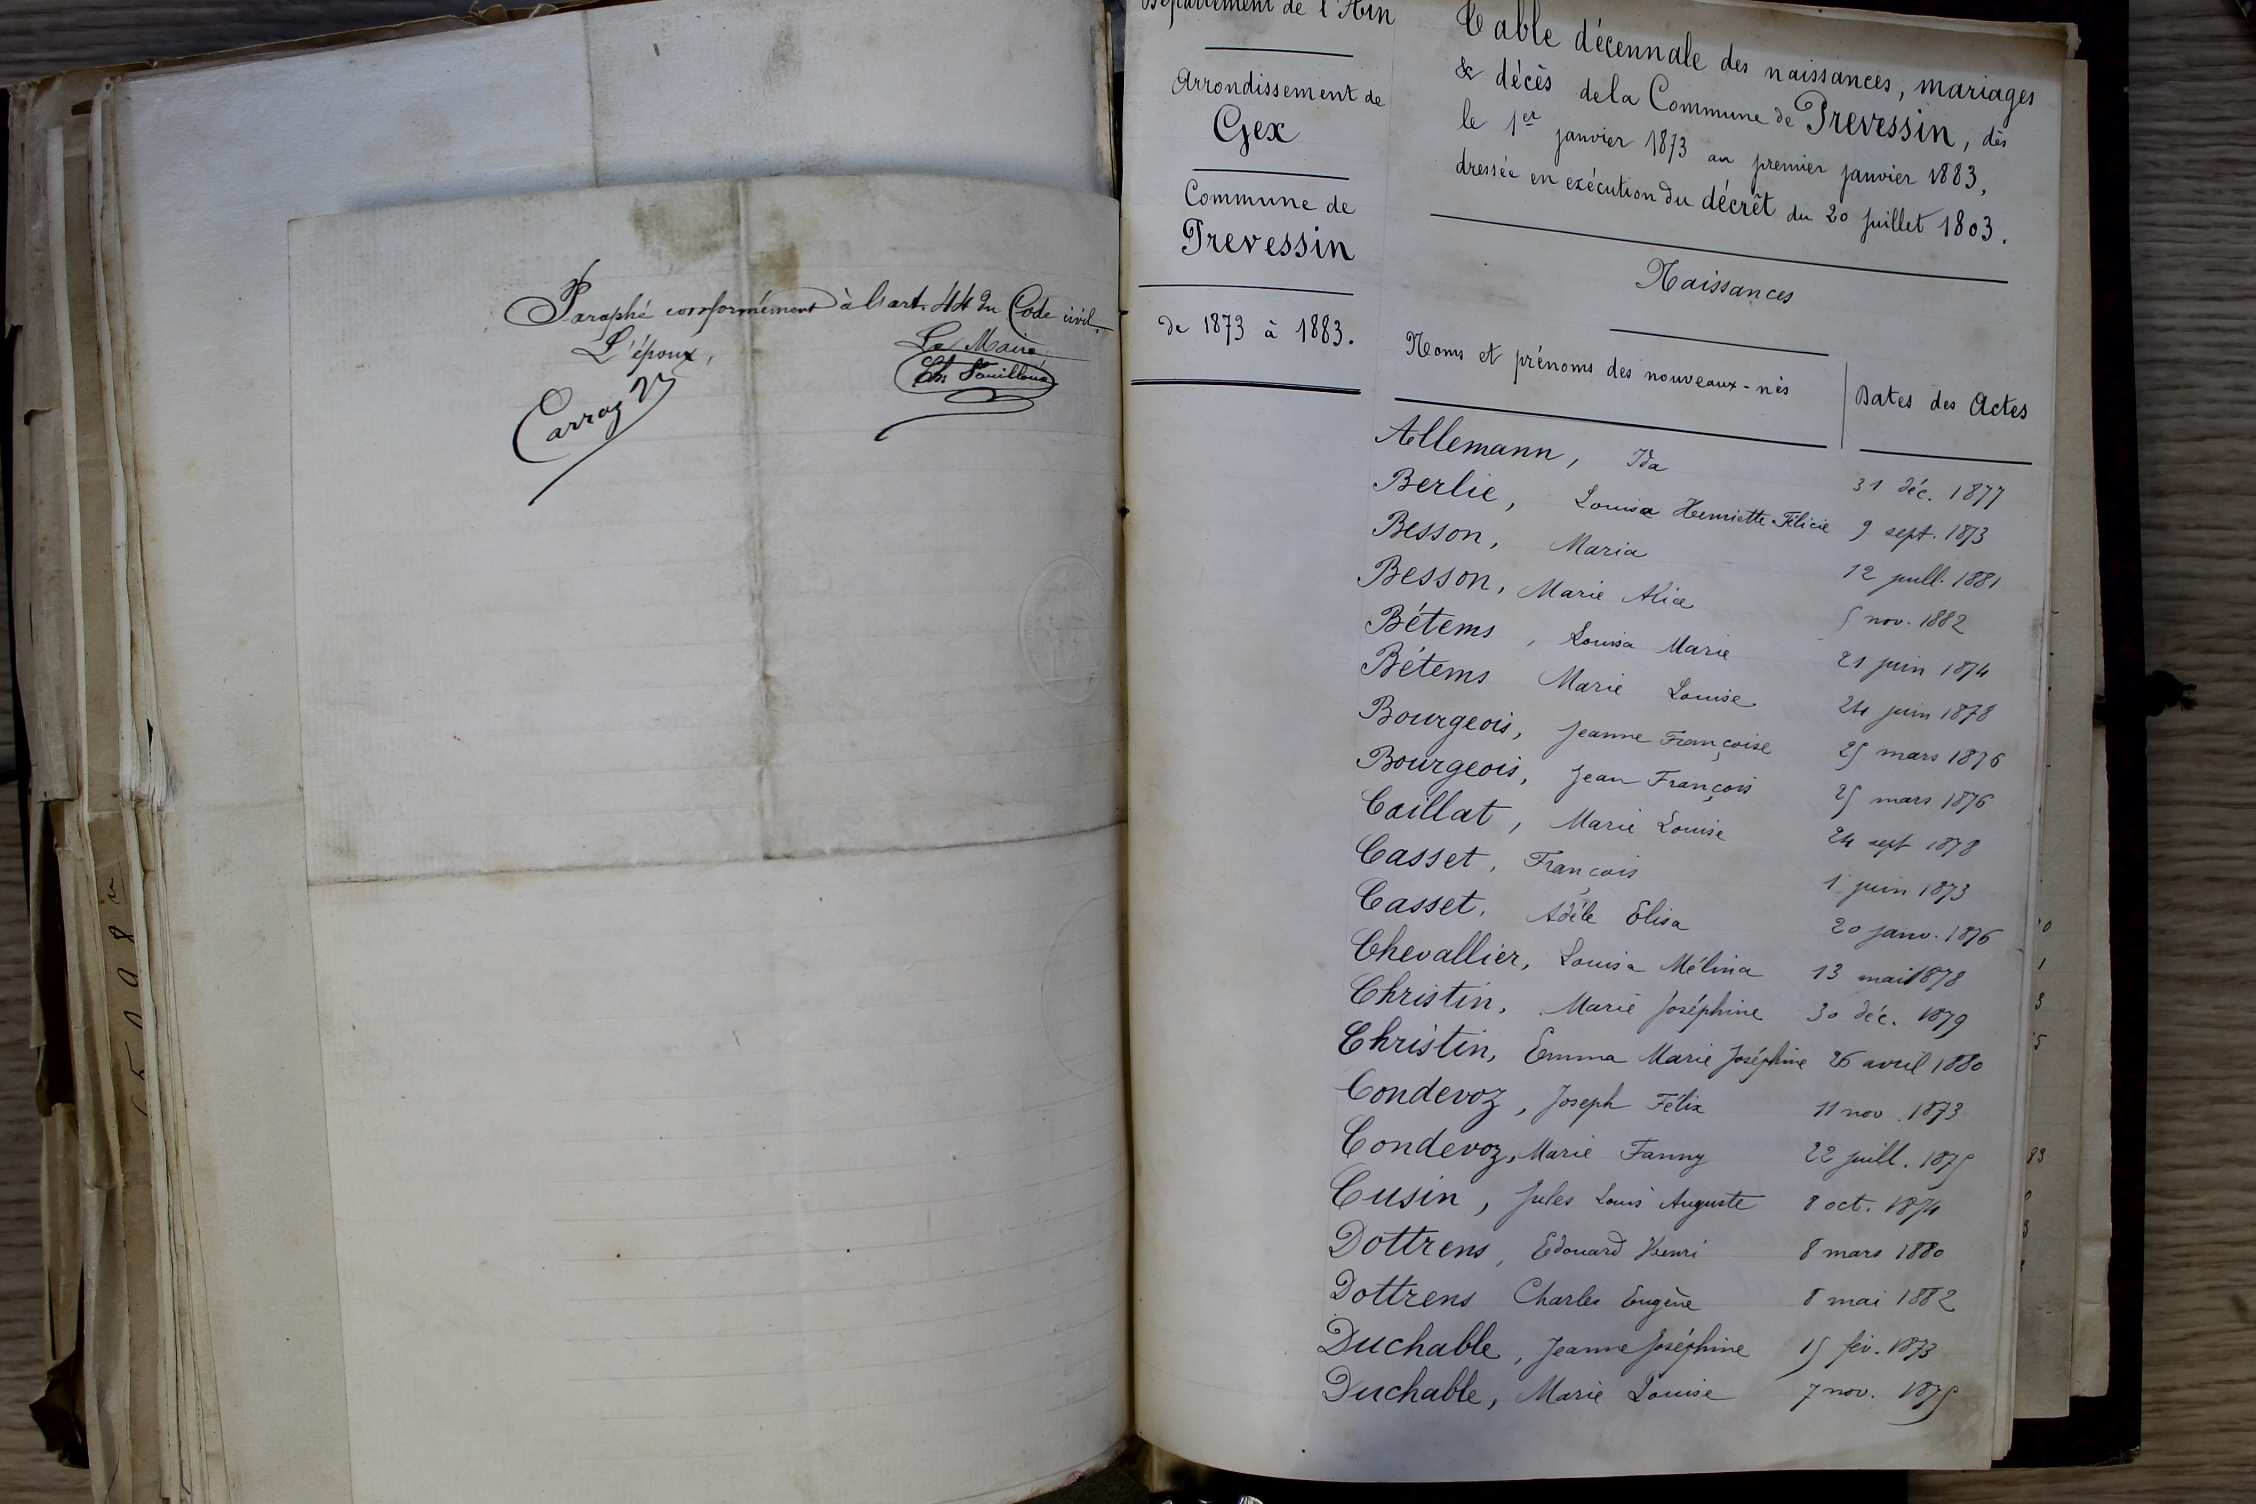 Paraphé conformément à l'art. 44 du Code civil.
L'époux,
Le Maire,
Département de l'Ain
Arrondissement de
Gex
Commune de
Prevessin
de 1873 à 1883.
Table décennale des naissances, mariages
& décès de la Commune de Prevessin, dès
le 1er janvier 1873 au premier janvier 1883,
dressée en exécution du décrêt du 20 juillet 1803.
Naissances
Noms et prénoms des nouveaux-nés Dates des Actes
Allemann, Ida 31 déc. 1877
Berlie, Louisa Henriette Félicie 9 sept. 1873
Besson, Maria 12 juill. 1881
Besson, Marie Alice 5 nov. 1882
Bétems, Louisa Marie 21 juin 1874
Bétems Marie Louise 24 juin 1878
Bourgeois, Jeanne Françoise 25 mars 1876
Bourgeois, Jean François 25 mars 1876
Caillat, Marie Louise 24 sept 1878
Casset, François 1 juin 1873
Casset, Adèle Elisa 20 janv. 1876
Chevallier, Louisa Mélina 13 mai 1878
Christin, Marie Joséphine 30 déc. 1879
Christin, Emma Marie Joséphine 26 avril 1880
Condevoz, Joseph Félix 11 nov. 1873
Condevoz, Marie Fanny 22 juill. 1875
Cusin, Jules Louis Auguste 8 oct. 1874
Dottrens, Edouard Henri 8 mars 1880
Dottrens Charles Eugène 8 mai 1882
Duchable, Jeanne Joséphine 15 fév. 1873
Duchable, Marie Louise 7 nov. 1875